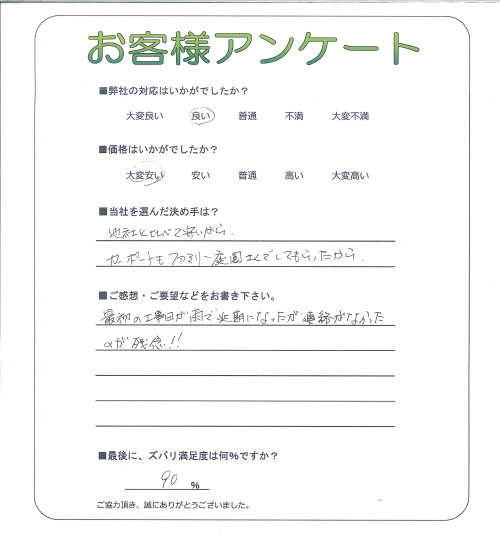 お客様アンケート
■弊社の対応はいかがでしたか？
大変良い 良い 普通 不満 大変不満
■価格はいかがでしたか？
大変安い 安い 普通 高い 大変高い
■当社を選んだ決め手は？
他社と比べて安いから。
カーポートもファミリー庭園さんでしてもらったから。
■ご感想・ご要望などをお書き下さい。
最初の工事日が雨で延期になったが連絡がなかった
のが残念!!
■最後に、ズバリ満足度は何％ですか？
90 %
ご協力頂き、誠にありがとうございました。